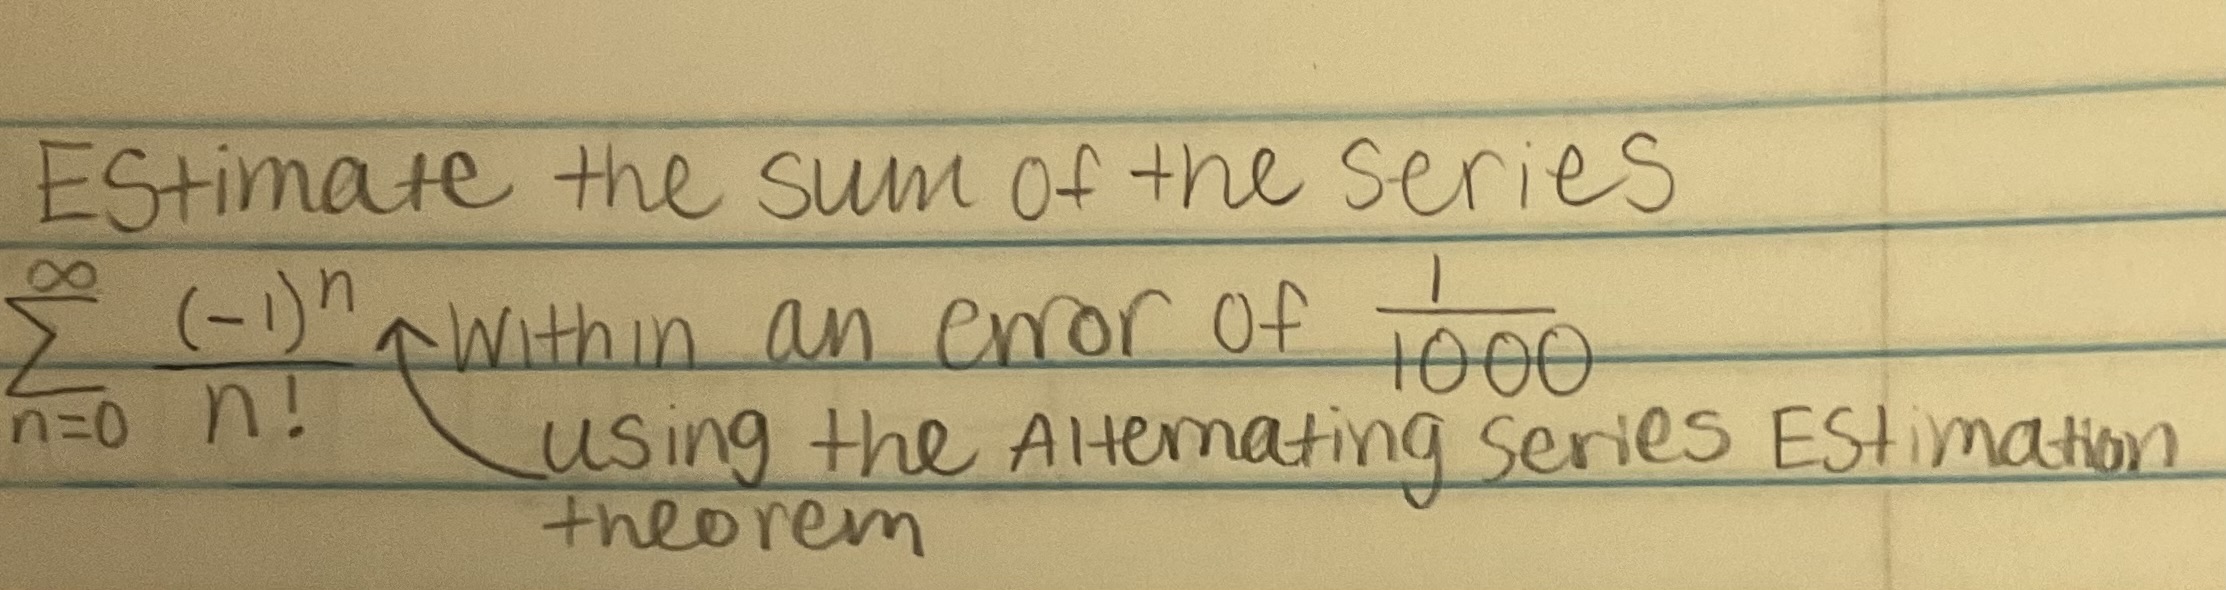 EStimate the sum of the series
∞ ∑ n=0 (-1)^n / n! Within an error of 1/1000
using the Alternating series EStimation
theorem